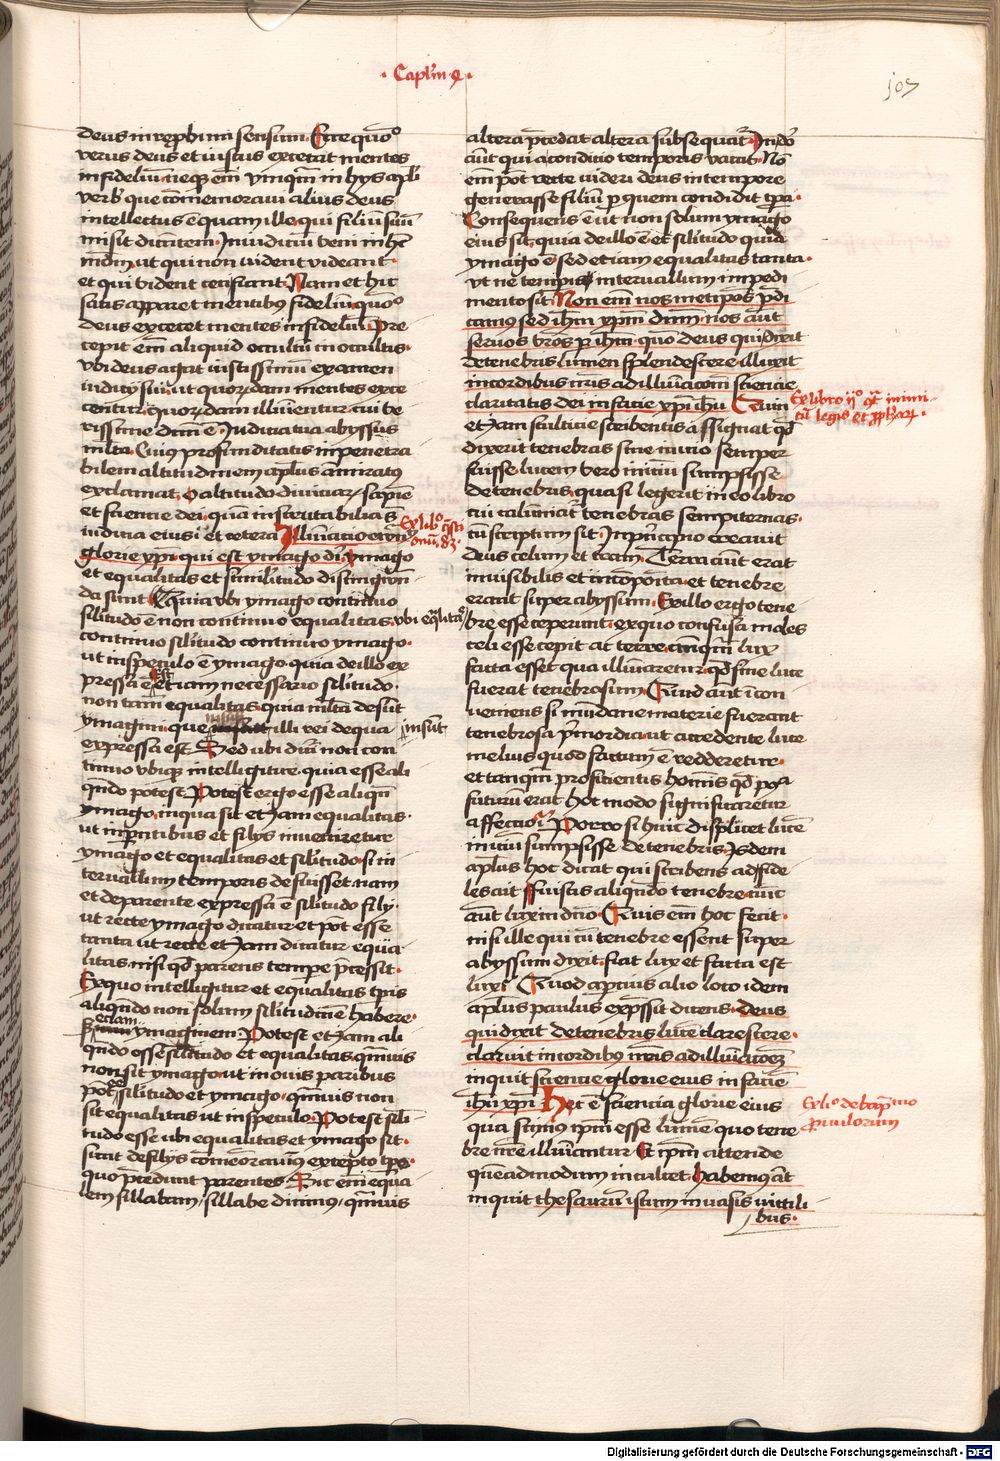 · Capl'm 4 ·
107
deus in reprobum sensum. Ecce quo°
verus deus et iustus excecat mentes
infidelium. neque em̄ vmqm̄ in hys apl'i
verb' que commemoraui alius deus
intellectus ē quam ille. qui filium suū
misit dicentem. In iudicium veni in h̄c
mdm̄. ut qui non vident videant.
et qui vident ceci fiant. Nam et hic
satis apparet mentibus fidelium. quo°
deus excecet mentes infidelium. Pre
cepit em̄ aliquid occultū in occultis.
vbi deus agat iustissimū examen
iudicij sui. ut quorundam mentes exce
centur. quorundam illuminentur. cui ve
rissime dictum ē. Iudicia tua abyssus
multa. Cuius profunditatis impenetra
bilem altitudinem apl'us admiratus
exclamat. O altitudo diuiciarum sapiencie
et sciencie dei. quam inscrutabilia sunt
iudicia eius. et cetera. Illuminacio ewangelij
glorie xpi. qui est ymago dei. Ymago
et equalitas et similitudo distinguen
da sunt. Quia vbi ymago continuo
similitudo ē non continuo equalitas. vbi equalitas
continuo similitudo. continuo ymago.
ut in speculo ē ymago. quia de illo ex
pressa ē. Est etiam necessario similitudo.
non tamen equalitas. quia multa desunt
ymagini. que illi rei de qua
insunt
expressa est. Sed ubi dicitur non con
tinuo vbique intelligitur. quia esse ali
quando potest. Potest ergo esse aliqua
ymago in qua sit etiam equalitas.
ut in parentibus et filijs inueniretur
ymago et equalitas et similitudo. si in
teruallum temporis defuisset. nam
et de parente expressa ē similitudo filij.
ut recte ymago dicatur et potest esse
tanta ut recte etiam dicatur equa
litas. nisi quod parens tempore precessit.
Ex quo intelligitur et equalitas temporis
aliquando non solum similitudinem habere.
sed etiam ymaginem. Potest etiam ali
quando esse similitudo et equalitas. quamuis
non sit ymago. ut in ouis paribus
potest esse similitudo et ymago. quamuis non
sit equalitas ut in speculo. Potest simili
tudo esse ubi equalitas et ymago sit.
sicut de filijs commemorauimus excepto tempore.
quo precedunt parentes. Sic enim equa
lem sillabam sillabe dicimus. quamuis
altera precedat altera subsequatur. In deo
autem quia condicio temporis vacat. Non
enim potest recte videri deus in tempore
generasse filium per quem condidit tempora.
Consequens ē ut non solum ymago
eius sit. quia de illo ē. et similitudo quia
ymago ē. sed etiam equalitas tanta.
ut ne temporis interuallum impedi
mento sit. Non enim nos metipsos predi
camus sed ihm xpm dnm. nos autem
seruos vestros per ihm. quo deus qui dixit
de tenebris lumen splendescere illuxit
in cordibus nostris ad illuminacionem sciencie
claritatis dei in facie xpi ihu. Cum
etiam sculticie scribentis assignat quod
dixerit tenebras sine inicio semper
fuisse. lucem vero inicium sumpsisse
de tenebris. quasi legerit in eo libro
cui calumniatur tenebras sempiternas.
cum scriptum sit. In principio creauit
deus celum et terram. Terra autem erat
inuisibilis et incomposita. et tenebre
erant super abyssum. Ex illo ergo tene
bre esse ceperunt. ex quo confusa moles
celi esse cepit ac terre. antequam lux
facta esset qua illuminaretur. quod sine luce
fuerat tenebrosum. Quid autem incon
ueniens si mundane materie fuerant
tenebrosa primordia. ut accedente luce
melius quod factum ē redderetur.
et tanquam proficientis hominis quod postea
futurum erat. hoc modo significaretur
affectio. Porro si huic displicet lucem
inicium sumpsisse de tenebris. Isdem
apl'us hoc dicat qui scribens ad fide
les ait. Fuistis aliquando tenebre. nunc
autem lux in dno. Quis enim hoc fecit.
nisi ille qui cum tenebre essent super
abyssum dixit. fiat lux et facta est
lux. Quod apercius alio loco idem
apl'us paulus expressit dicens. Deus
qui dixit de tenebris lucem clarescere.
claruit in cordibus nostris ad illuminacionem
inquit sciencie glorie eius in faciem
ihu xpi. Hec ē sciencia glorie eius
qua scimus ipsum esse lumen quo tene
bre nostre illuminantur. Et ipsum attende
quemadmodum inculcet. habemus autem
inquit thesaurum istum in vasis fictili
bus.
Ex libro ij° contra inimi
cum legis et prophetarum.
Ex libro de baptismo
paruulorum
Digitalisierung gefördert durch die Deutsche Forschungsgemeinschaft - DFG